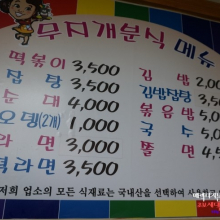 무지개분식 메뉴
떡볶이 3,500 김밥 2,
잡탕 3,500 김밥잡탕 3,
순대 4,000 볶음밥 5,
오뎅(2개) 1,000 국수 5,
라면 3,000 쫄면 4,5
떡라면 3,500
저희 업소의 모든 식재료는 국내산을 선택하여 사용